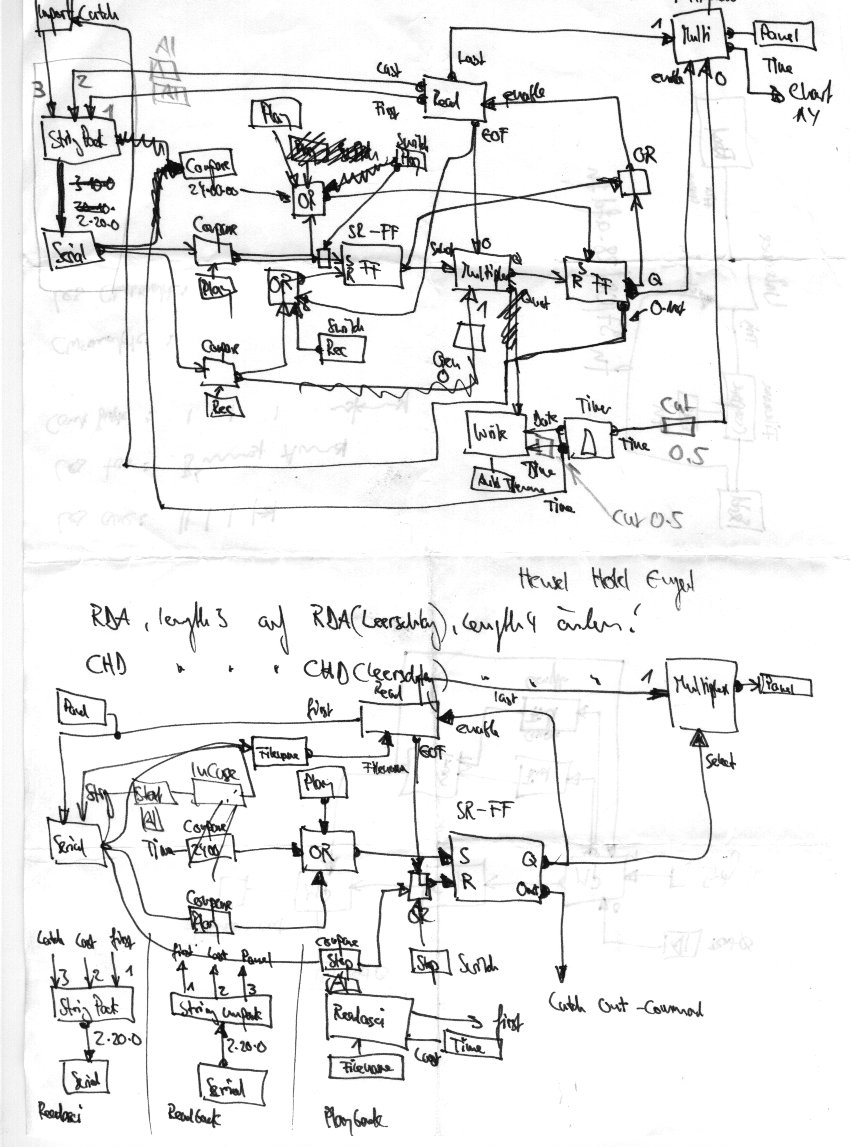 Import Catch
Multi
1
Panel
enable
0
Time
Chart
XY
Last
Last
First
Read
enable
EOF
3
2
1
AI
String Pack
Compare
24:00:00
Play
Switch
Play
OR
OR
3.10.0
2.20.0
Serial
Compare
Play
SR-FF
S
R
FF
OR
Switch
Rec
Compare
Rec
0
Multiplex
1
Q
S
R
FF
Q
Q-not
Open
Write
Date
Time
Timer
Time
Cut
0.5
Auto Filename
Time
Cut 0.5
RDA, length 3 auf RDA (Leerschlag), Length 4 ändern!
CHD " " " CHD (Leerschlag) " " "
Panel
first
Read
last
1
Multiplex
Panel
enable
Select
EOF
Filename
Filename
String
Start
AI
InCase
Play
Serial
Time
Compare
2400
OR
SR-FF
S
R
Q
Qnot
Compare
Play
OR
Compare
Stop
Stop
Switch
Catch Out-Command
Catch Last first
3 2 1
String Pack
2.20.0
Serial
Readasci
first Last Panel
1 2 3
String unpack
2.20.0
Serial
Readback
AI
Readasci
first
Last
Time
Filename
Playback